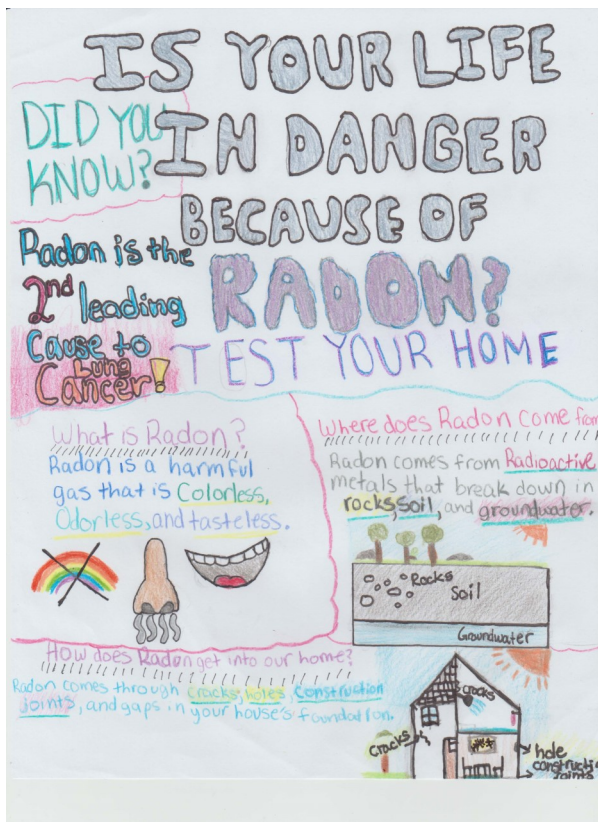 IS YOUR LIFE
IN DANGER
BECAUSE OF
RADON?
TEST YOUR HOME
DID YOU
KNOW?
Radon is the
2nd leading
cause to
Lung
Cancer!
What is Radon?
Radon is a harmful
gas that is Colorless,
Odorless, and tasteless.
Where does Radon come from
Radon comes from Radioactive
metals that break down in
rocks, soil, and groundwater.
Rocks
Soil
Groundwater
How does Radon get into our home?
Radon comes through cracks, holes, construction
joints, and gaps in your house's foundation.
cracks
cracks
hole
constructi
joints